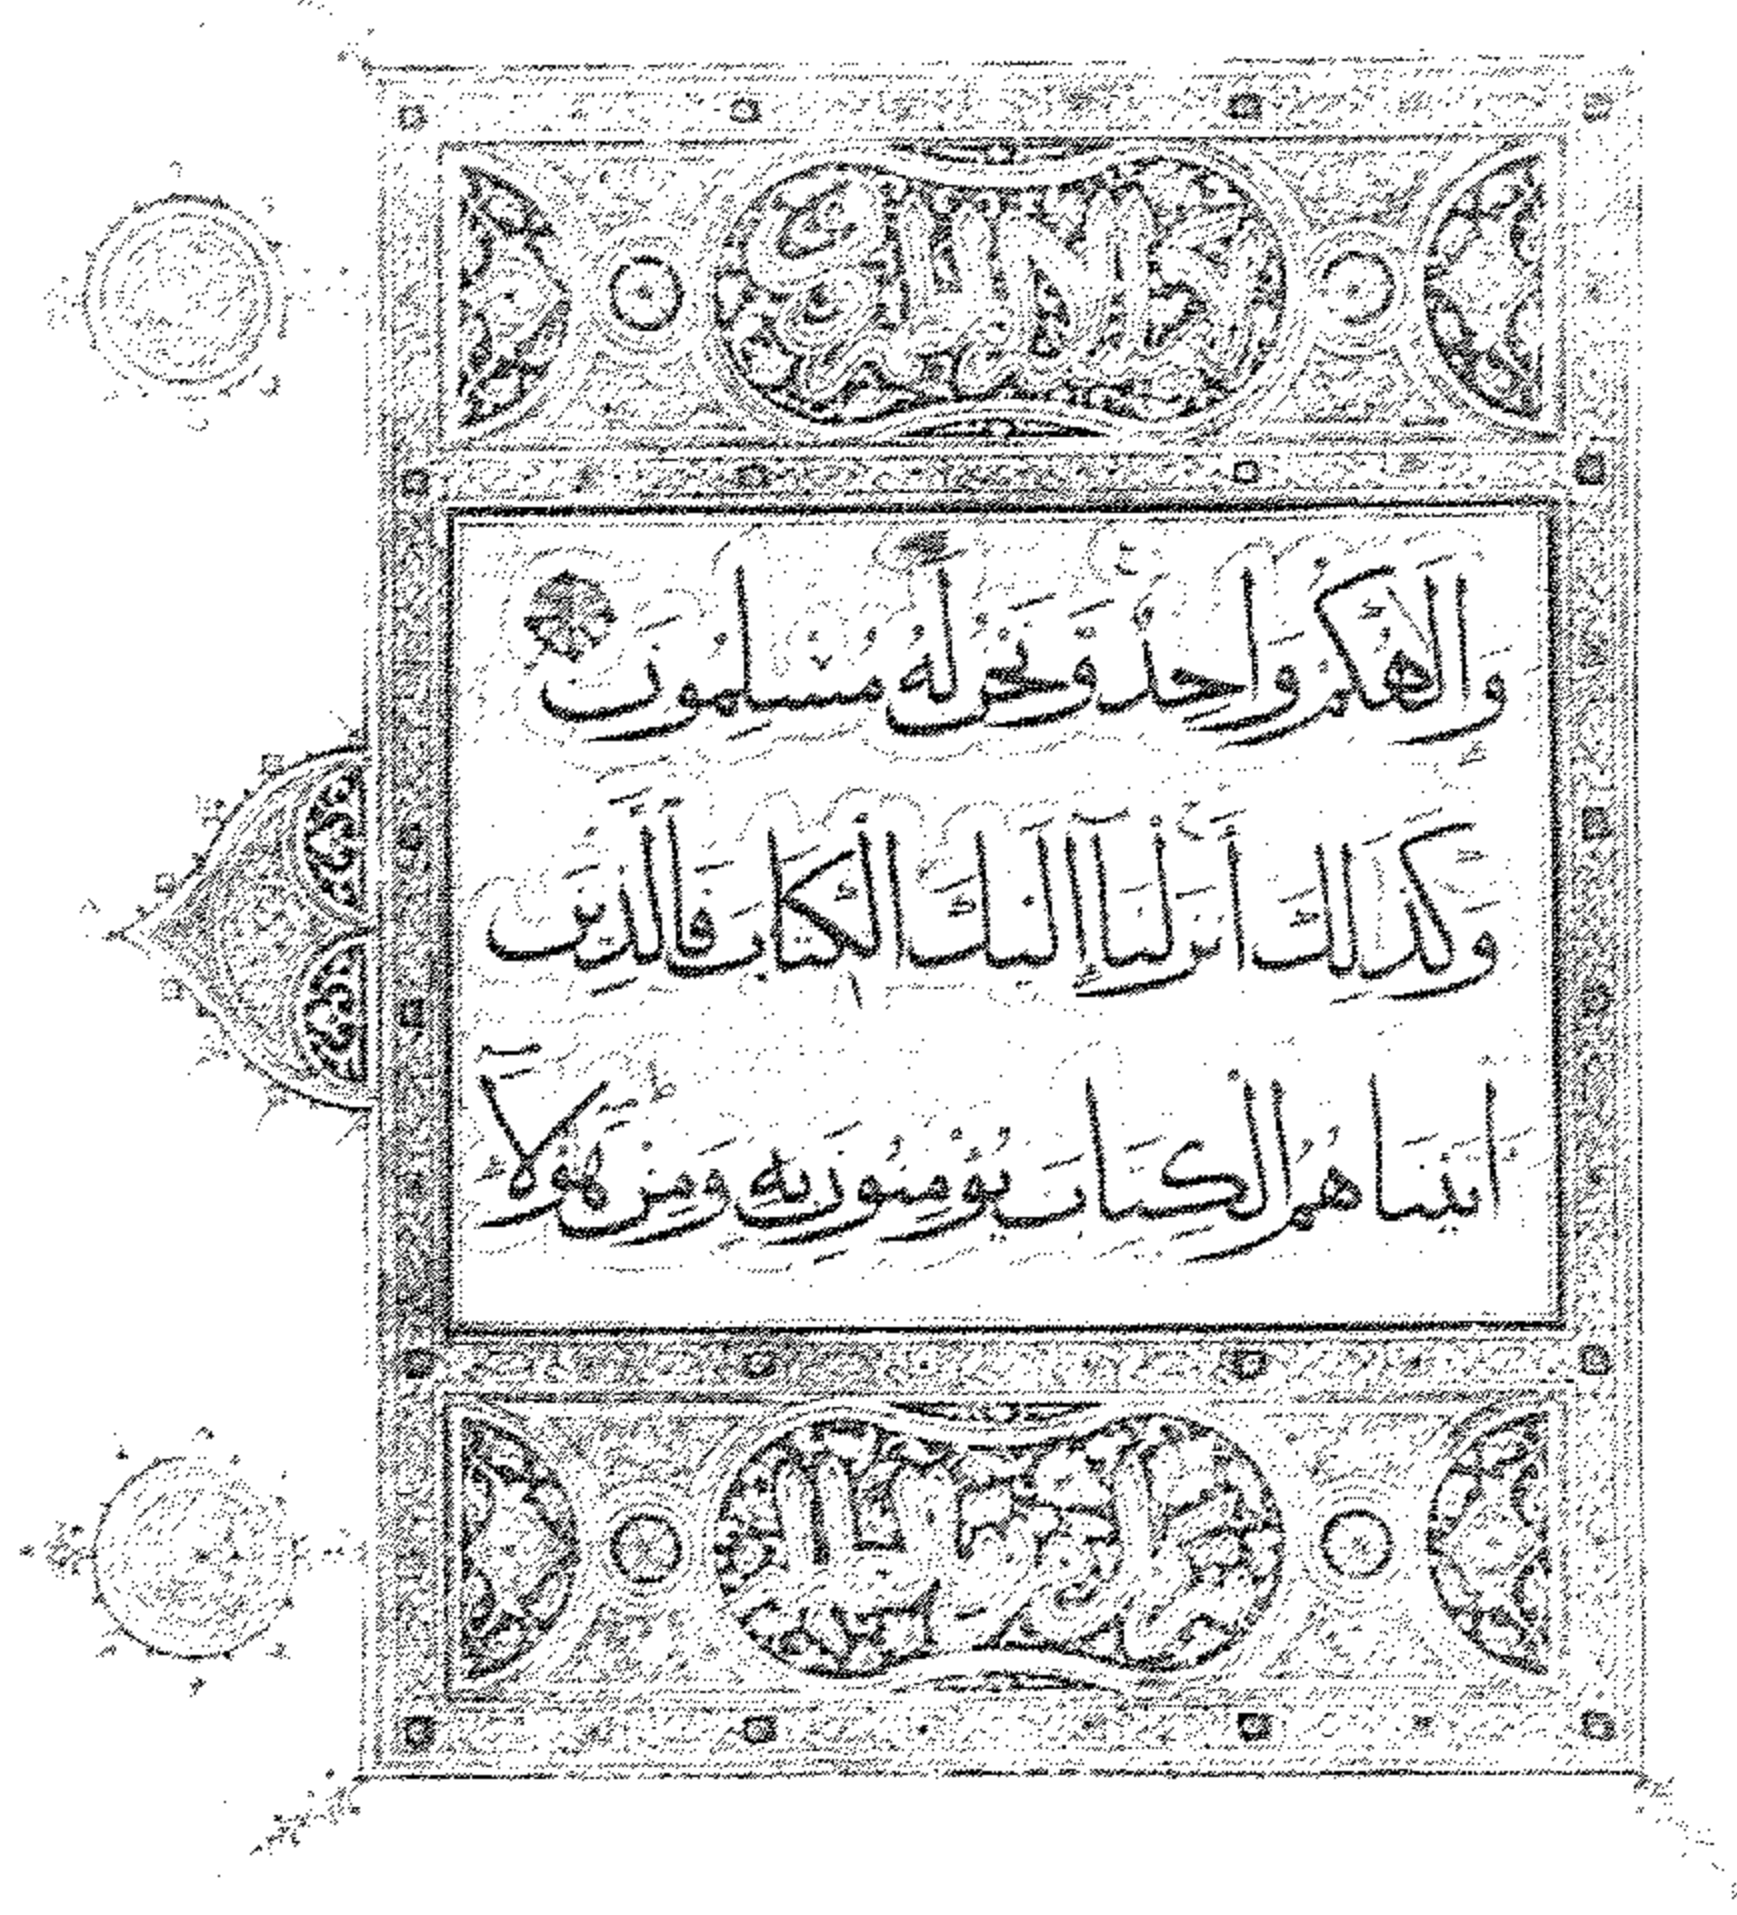 وَإِلَٰهُكُمْ وَاحِدٌ وَنَحْنُ لَهُ مُسْلِمُونَ
وَكَذَٰلِكَ أَنْزَلْنَآ إِلَيْكَ الْكِتَابَ فَالَّذِينَ
اتَيْنَاهُمُ الْكِتَابَ يُؤْمِنُونَ بِهِ وَمِنْ هَؤُلَآ